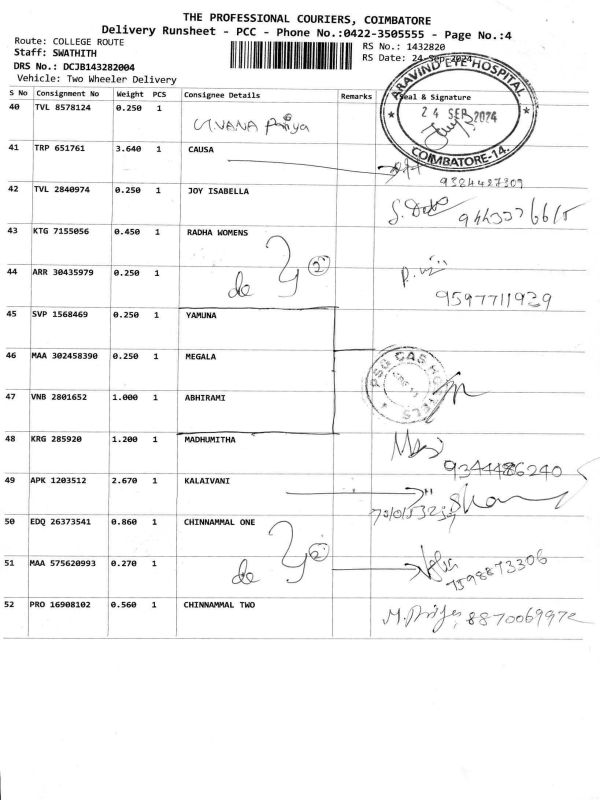 THE PROFESSIONAL COURIERS, COIMBATORE
Delivery Runsheet - PCC - Phone No.:0422-3505555 - Page No.:4
Route: COLLEGE ROUTE
Staff: SWATHITH
DRS No.: DCJB143282004
Vehicle: Two Wheeler Delivery
RS No.: 1432820
RS Date: 24-Sep-2024
S No Consignment No Weight PCS Consignee Details Remarks Seal & Signature
40 TVL 8578124 0.250 1
ARAVIND EYE HOSPITAL
24 SEP 2024
COIMBATORE-14.
41 TRP 651761 3.640 1 CAUSA
9384427309
42 TVL 2840974 0.250 1 JOY ISABELLA
43 KTG 7155056 0.450 1 RADHA WOMENS
do 2
44 ARR 30435979 0.250 1
9597711929
45 SVP 1568469 0.250 1 YAMUNA
46 MAA 302458390 0.250 1 MEGALA
PSG CAS HOSTELS
47 VNB 2801652 1.000 1 ABHIRAMI
48 KRG 285920 1.200 1 MADHUMITHA
9344486240
49 APK 1203512 2.670 1 KALAIVANI
50 EDQ 26373541 0.860 1 CHINNAMMAL ONE
do 2
51 MAA 575620993 0.270 1
7598873306
52 PRO 16908102 0.560 1 CHINNAMMAL TWO
8870069972